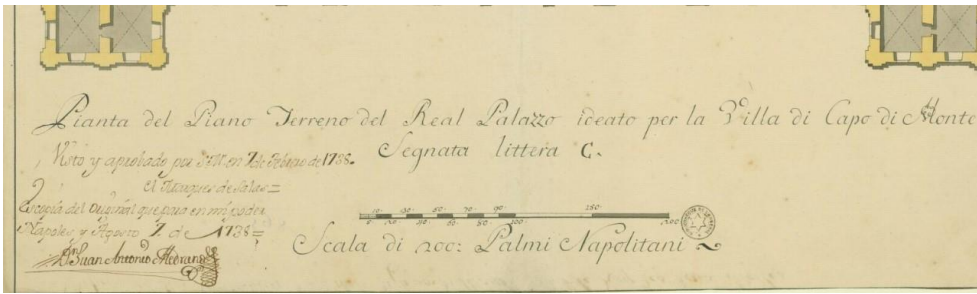 Pianta del Piano Terreno del Real Palazzo ideato per la Villa di Capo di Monte
Segnata littera C.
Visto y aprobado por S.M. en 7 de Febrero de 1738.
El Marques de Salas=
Es copia del Original que para en mi poder
Napoles y Agosto 7 de 1738=
Dn Juan Antonio Medrano
10. 30. 50. 70. 90. 150.
0. 20. 40. 60. 80. 100. 200
Scala di 200: Palmi Napolitani